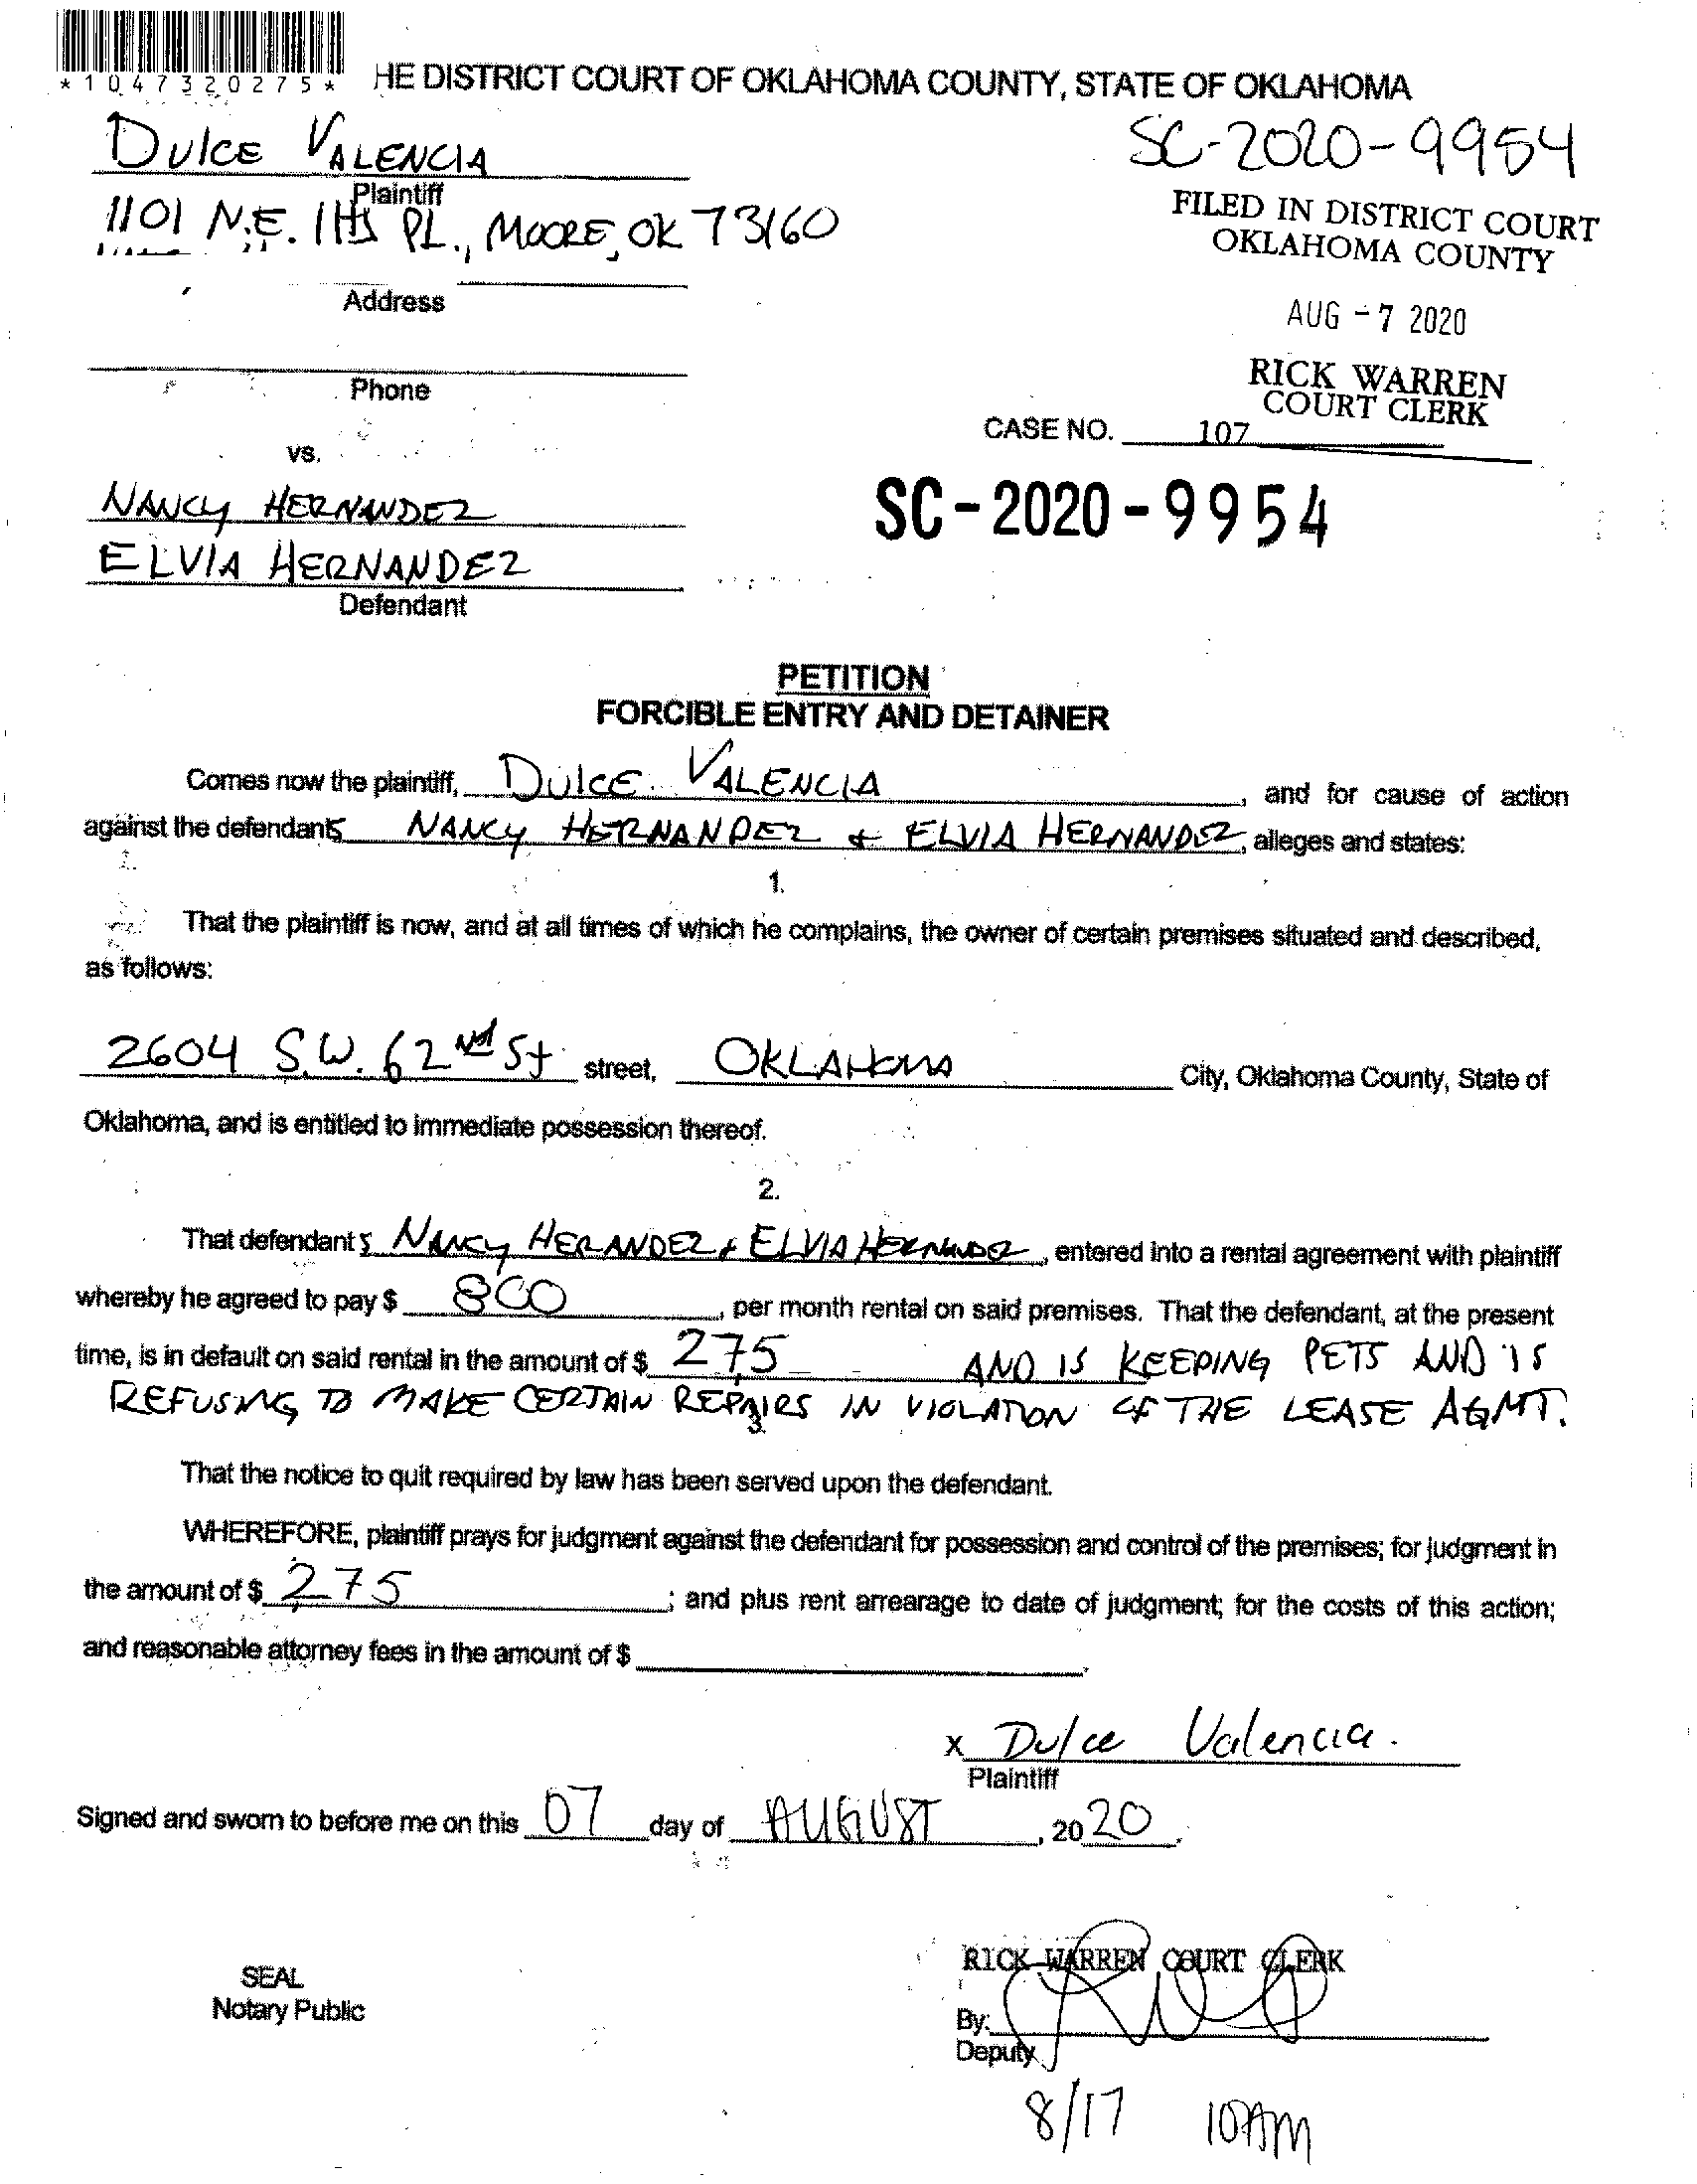 *1047320275*
HE DISTRICT COURT OF OKLAHOMA COUNTY, STATE OF OKLAHOMA
DULCE VALENCIA
SC-2020-9954
Plaintiff
1101 N.E. PL., MOORE, OK 73160
FILED IN DISTRICT COURT
OKLAHOMA COUNTY
Address
AUG -7 2020
RICK WARREN
COURT CLERK
Phone
CASE NO. 107
vs.
NANCY HERNANDEZ
SC-2020-9954
ELVIA HERNANDEZ
Defendant
PETITION
FORCIBLE ENTRY AND DETAINER
Comes now the plaintiff, DULCE VALENCIA, and for cause of action
against the defendants NANCY HERNANDEZ & ELVIA HERNANDEZ, alleges and states:
1.
That the plaintiff is now, and at all times of which he complains, the owner of certain premises situated and described,
as follows:
2604 S.W. 62ND St street, OKLAHOMA City, Oklahoma County, State of
Oklahoma, and is entitled to immediate possession thereof.
2.
That defendants NANCY HERANDEZ & ELVIA HERNANDEZ, entered into a rental agreement with plaintiff
whereby he agreed to pay $ 800, per month rental on said premises. That the defendant, at the present
time, is in default on said rental in the amount of $ 275 AND IS KEEPING PETS AND IS
REFUSING TO MAKE CERTAIN REPAIRS IN VIOLATION OF THE LEASE AGMT.
3.
That the notice to quit required by law has been served upon the defendant.
WHEREFORE, plaintiff prays for judgment against the defendant for possession and control of the premises; for judgment in
the amount of $ 275; and plus rent arrearage to date of judgment; for the costs of this action;
and reasonable attorney fees in the amount of $
x Dulce Valencia.
Plaintiff
Signed and sworn to before me on this 07 day of AUGUST, 2020.
RICK WARREN COURT CLERK
SEAL
Notary Public
By:
Deputy
8/17 10AM